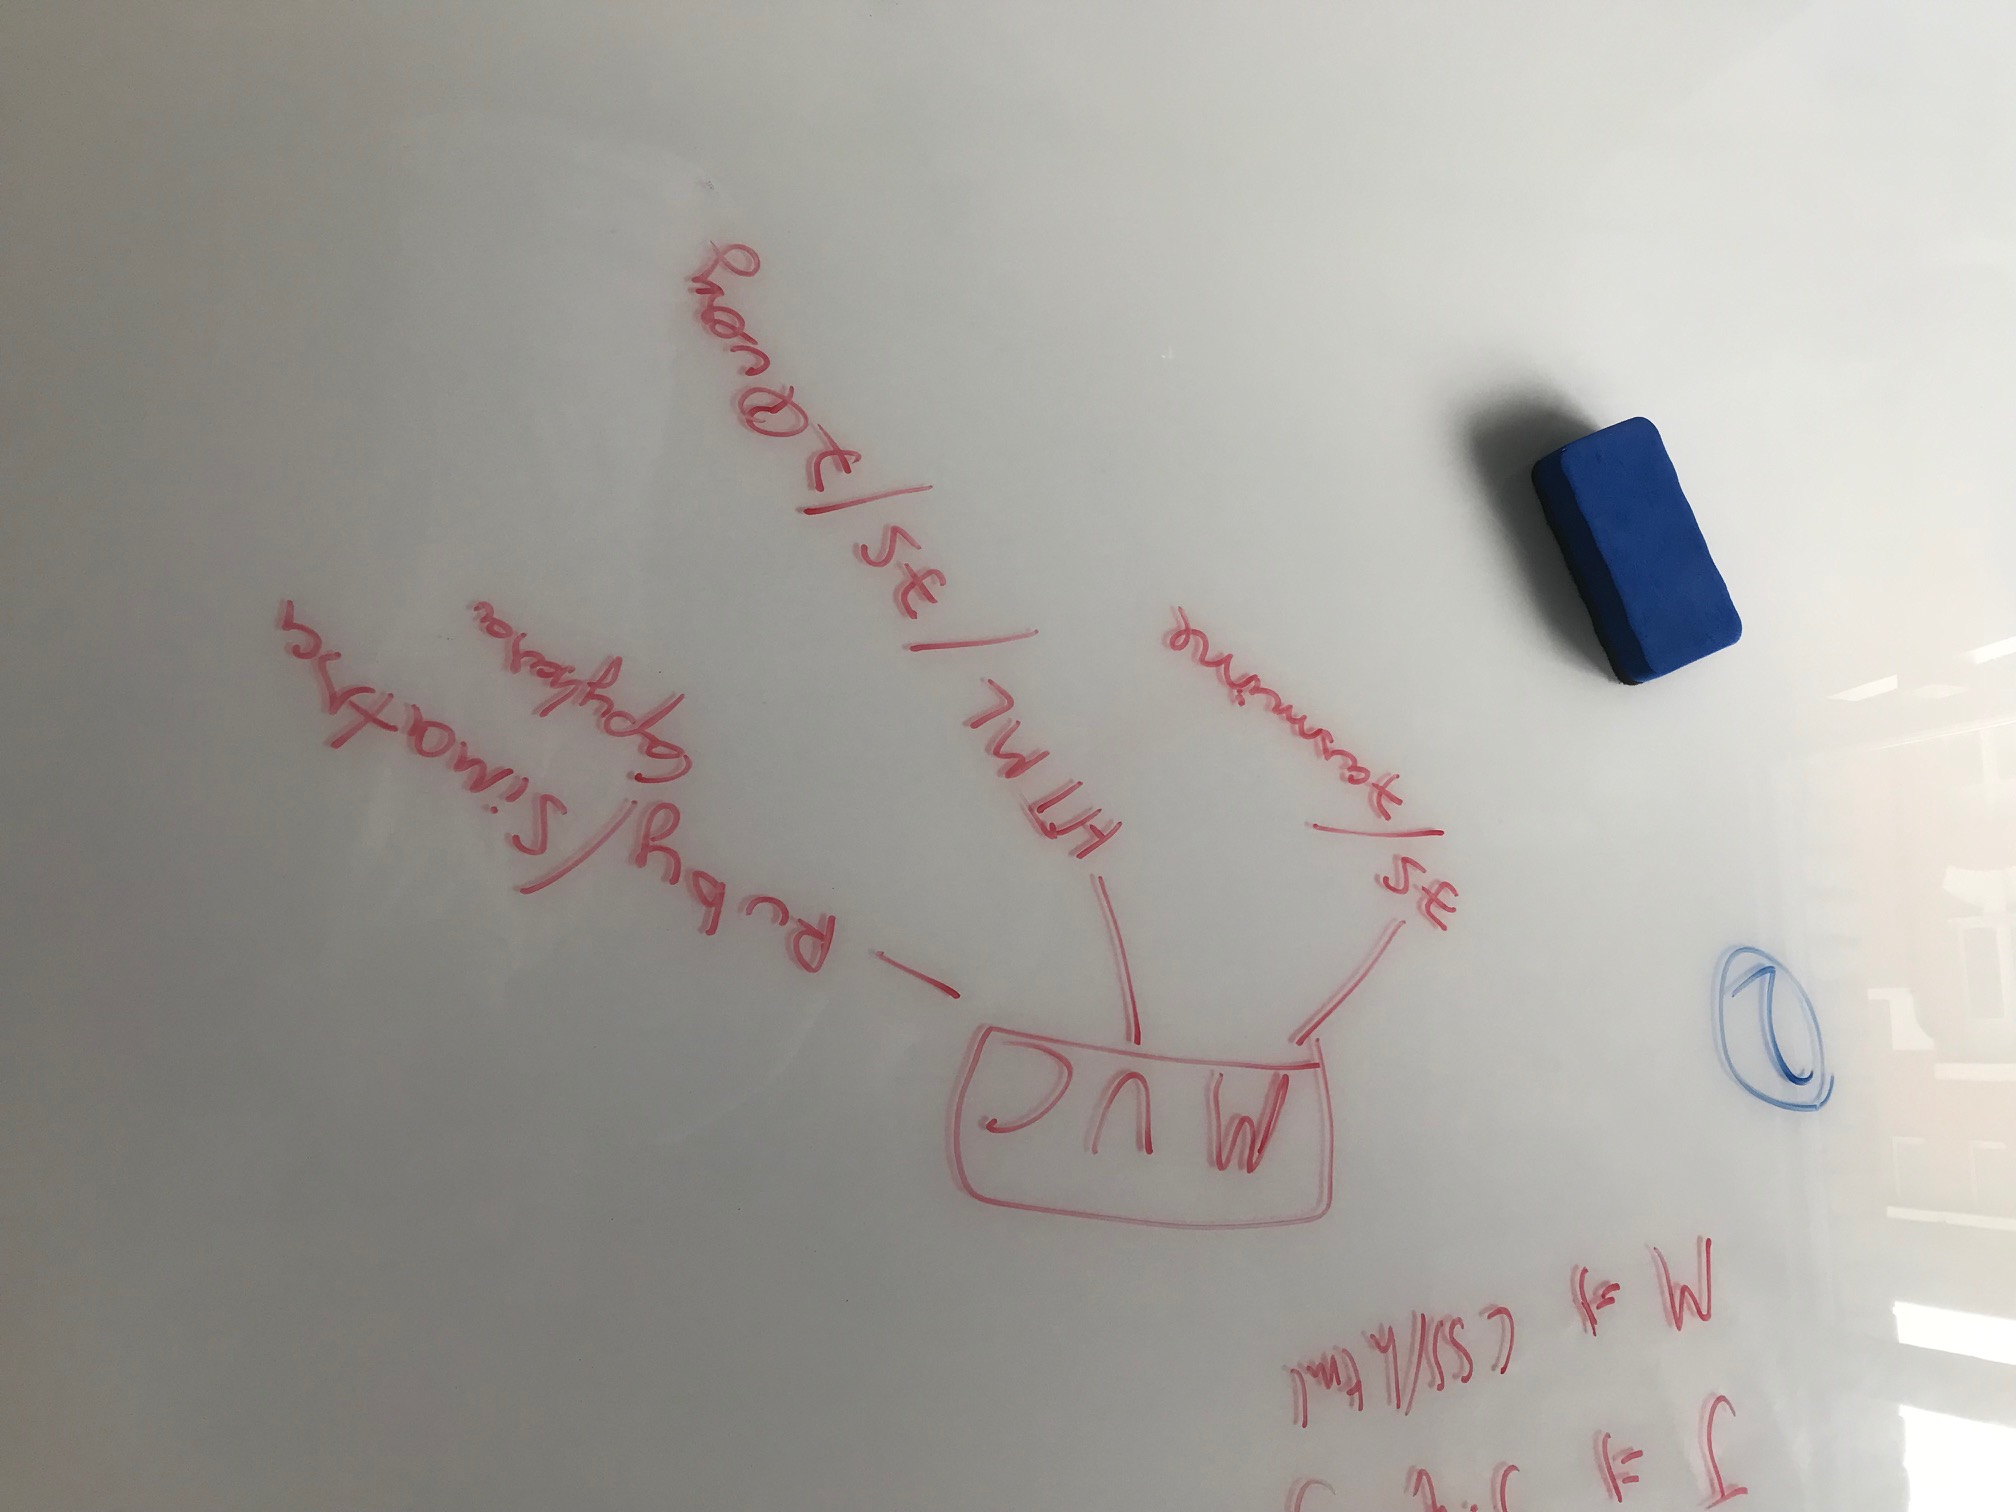 J =>
M => CSS/html
2
M V C
JS / Jasmine
HTML / JS / JQuery
Ruby / Sinatra
Capybara